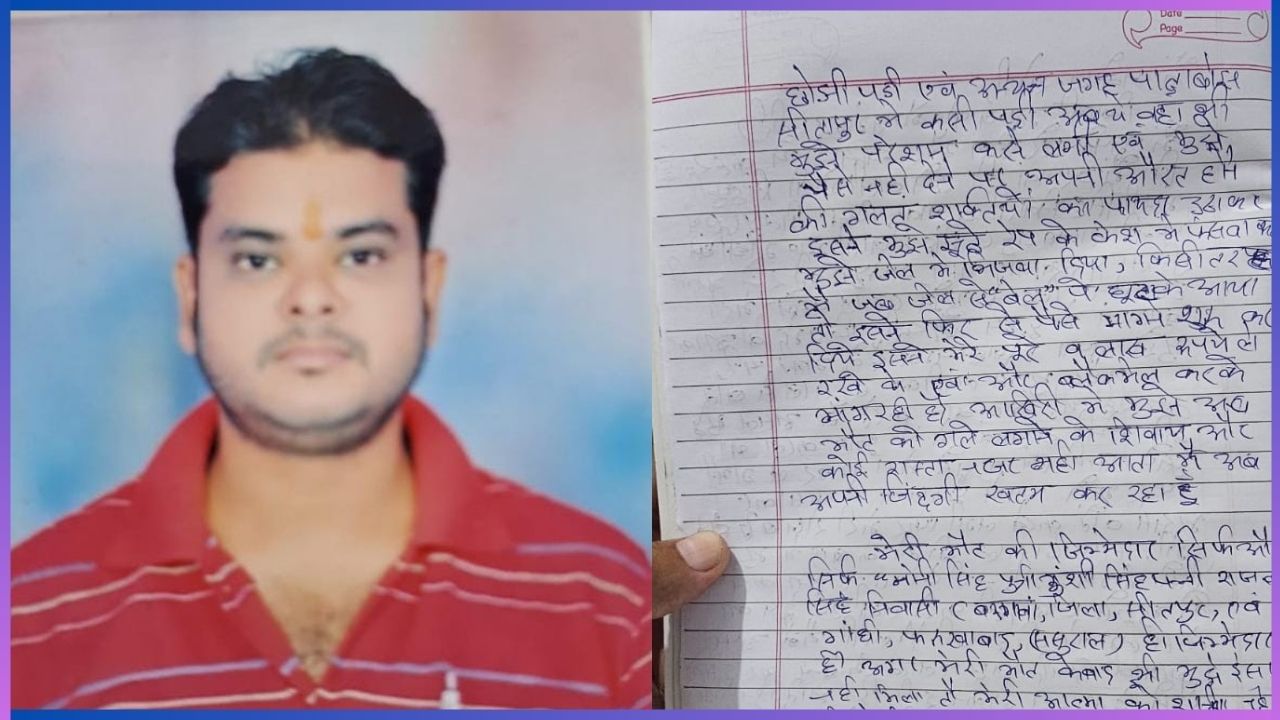 Date
Page
छोडनी पड़ी एवं जगह
सीतापुर में करनी पड़ी वहा भी
मुझे परेशान करने लगी एवं मुझे
पैसे नहीं देने पर अपनी औरत होने
की गलत शक्तियों का फायदा उठाकर
इसने मुझे झूठे रेप के केश में फसवा कर
मुझे जेल में भिजवा दिया, किसी तरह
मै जब जेल से "बेल" पे छूटके आया
तो इसने फिर से पैसे मागने शुरू कर
दिये इसने मेरे पूरे लाख रूपये ले
रखे थे एवं और ब्लैकमेल करके
माग रही है, आखिरी में मुझे अब
मौत को गले लगाने के शिवाय और
कोई रास्ता नजर नही आता मै अब
अपनी जिंदगी खतम कर रहा हूं
मेरी मौत की जिम्मेदार सिर्फ और
सिर्फ सिंह पुत्री मुंशी सिंह पत्नी
सिंह निवासी जिला, सीतापुर, एवं
गांधी, फरुखाबाद, (ससुराल) है जिम्मेदार
है अगर मेरी मौत के बाद भी मुझे
नही मिला तो मेरी आत्मा को